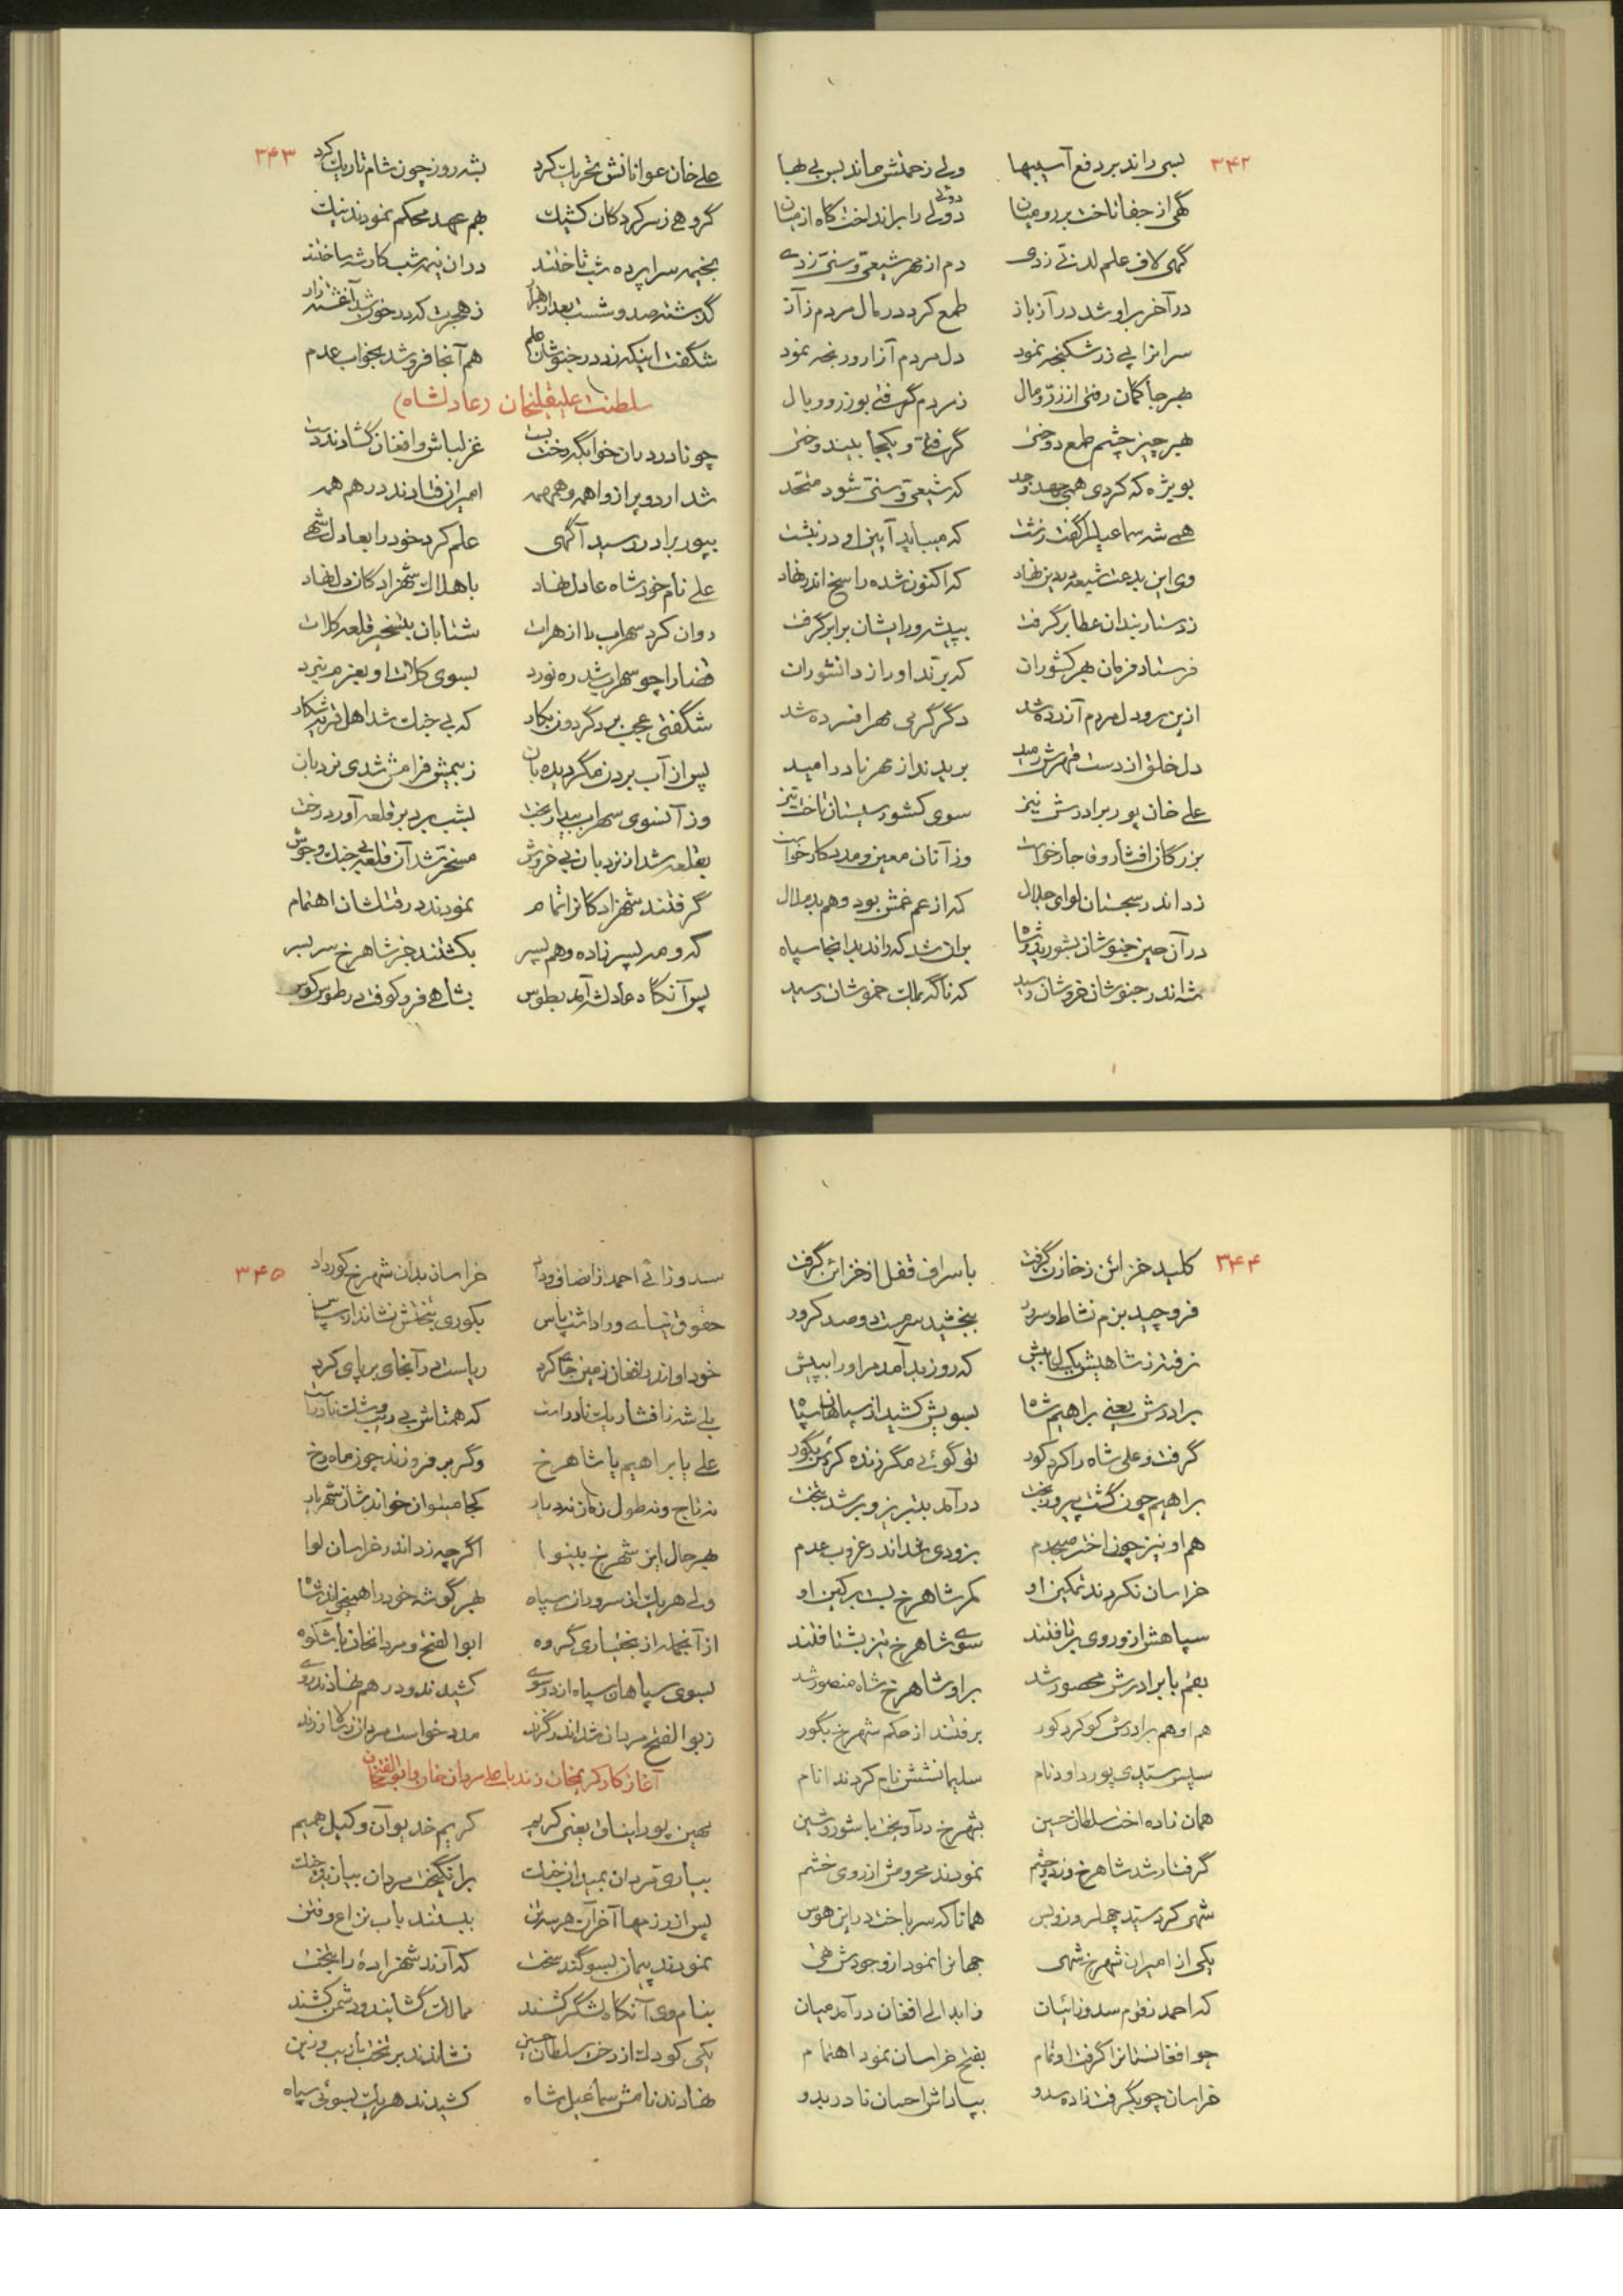 ۳۴۲
بسی راند بر دفع آسیبها ولی زحمتش ماند بس بی بها
گهی از جفا تاخت بر رومیان دوتلی را برانداخت گاه از میان
گهی لاف علم لدنی زدی دم از مهر شیعی و سنی زدی
در آخر بر او شد در آز باز طمع کرد در مال مردم ز آز
سرانرا پی زر شکنجه نمود دل مردم آزار و رنجه نمود
بهر جا گمان رفتی از زر و مال ز مردم گرفتی بوزر و وبال
بهر چیز چشم طمع دوختی گرفتی و یکجا
بویژه که کردی همی جهد و جد که شیعی و سنی شود متحد
همی شه سماعیل را گفت زشت که میباید آیین او در نبشت
وی این بدعت شیعه بد بر نهاد که اکنون شده راسخ اندر نهاد
عطا بر گرفت ایشان برابر گرفت
فرستاد فرمان بهر کشورات که برند او را ز دانشورات
ازین رو دل مردم آزرده شد دگر گرمی مهر افسرده شد
دل خلق از دست قهرش رمید بریدند از مهر نادر امید
علی خان پور برادرش نیز سوی کشور سیستان تاخت تیز
بزرگان افشار و قاجار خواست وز آنان معین و مددکار خواست
زد اندر سجستان لوای جلال که از عم غمش بود و هم بد ملال
در آن حین خبوشان بشورید و شاه بران شد که راند بدانجا سپاه
شه اندر خبوشان خروشان رسید که ناگه بملک خموشان رسید
۳۴۳
علی خان عوانانش تحریک کرد بشه روز چون شام تاریک کرد
گروهی ز سرکردگان کشیک بهم عهد محکم نمودند نیک
بخیمه سراپرده شب تاختند در ان نیمه شب کار شه ساختند
گذشته صد و شست بعد از هزار ز هجرت که در خون شد آغشته زار
شگفت اینکه زد در خبوشان علم هم آنجا فرو شد بخواب عدم
سلطنت علیقلیخان (عادلشاه)
چو نادر در ان خوابگه رخت بست غزلباش و افغان گشادند دست
شد اردو پر از واهمه و همهمه امیران فتادند در هم همه
بپور برادر رسید آگهی علم کرد خود را بعادلشهی
علی نام خود شاه عادل نهاد باهلاک شهزادگان دل نهاد
روان کرد سهراب را از هرات شتابان بتسخیر قلعه کلات
قضا را چو سهراب شد ره نورد بسوی کلات او بعزم نبرد
شگفتی عجب برد گردون بکار که بی جنگ شد اهل قریه شکار
پس از آب بردن مگر دیده بان ز بیمش فرامش شدی نردبان
وز آنسوی سهراب بیدار بخت بشب برد بر قلعه آورد رخت
بقلعه شد از نردبان بی خروش مسخر شد آن قلعه بی جنگ و جوش
گرفتند شهزادگانرا تمام نمودند در قتلشان اهتمام
که و مه پسر زاده و هم پسر بکشتند جز شاهرخ سر بسر
پس آنگاه عادلشه آمد بطوس بشاهی فرو کوفت در طوس کوس
۳۴۴
کلید خزائن ز خازن گرفت باسراف قفل از خزائن گرفت
فرو چید بزم نشاط و سرور ببخشید سرمست دو صد کرور
نرفته ز شاهیش یکسال بیش که روز بد آمد مر او را بپیش
برادرش یعنی براهیم شاه بسویش کشید از سپاهان سپاه
گرفت و علی شاه را کرد کور تو گوئی مگر زنده کردش بگور
براهیم چون گشت پیروز بخت در آمد بتبریز و بر شد بتخت
هم او نیز چون اختر صبحدم بزودی شد اندر غروب عدم
خراسان نکردند تمکین او کمر شاهرخ بست بر کین او
سپاهش ازو روی بر تافتند سوی شاهرخ تیز بشتافتند
بقم با برادرش محصور شد بر او شاهرخ شاه منصور شد
هم او هم برادرش کو کرد کور برفتند از حکم شهرخ بگور
سپس سیدی پور داود نام سلیمانشش نام کردند انام
همان زاده اخت سلطان حسین بشهرخ در آویخت با شور و شین
گرفتار شد شاهرخ وز دو چشم نمودند محرومش از روی خشم
شهی کرد سید چهل روز و بس همانا که سر باخت در این هوس
یکی از امیران شهرخ شهی جهانرا نمود از وجودش تهی
که احمد ز قوم سدوزائیان ز ابدالی افغان در آمد میان
چو افغانستانرا گرفت او تمام بفتح خراسان نمود اهتمام
خراسان چو بگرفت زاده سدو بپاداش احسان نادر بدو
۳۴۵
سدوزائی احمد از انصاف و داد خراسان بدان شهرخ کور داد
حقوق نیای ورا داشت پاس بکوری بتختش نشاند از سپاس
خود او اندر افغان زمین جای کرد ریاست در آنجای بر پای کرد
بلی شه ز افشار یک نادر است که همتاش بی ریب و شک نادر است
علی یا براهیم یا شاهرخ وگر بر فروزند چون ماه رخ
نه تاج و نه طول زمان نه دیار کجا میتوان خواندشان شهریار
بهر حال این شهرخ بینوا اگر چه زد اندر خراسان لوا
ولی هر یک از سروران سپاه بهر گوشه خود را همیخواند شاه
از آنجمله از بختیاری گروه ابوالفتح و مردانخان با شکوه
بسوی سپاهان سپاه از دو سوی کشیدند و در هم نهادند روی
ز بوالفتح مردان شد اندر گزند مدد خواست مردان ز لرها و زند
آغاز کار کریمخان زند با علی مردان خان و ابوالفتحخان
بهین پور ایناق یعنی کریم کریم خدیو آن وکیل همیم
بیاری مردان بمیدان جنگ برانگیخت مردان
پس از رزمها آخر آن هر سه تن ببستند باب نزاع و فتن
نمودند پیمان بسوگند سخت که آرند شهزاده را بتخت
بنام وی آنگاه لشگر کشند ممالک گشایند و دشمن کشند
یکی کودک از دخت سلطان حسین نشاندند بر تخت با زیب و زین
نهادند نامش سماعیل شاه کشیدند هر یک بسوئی سپاه